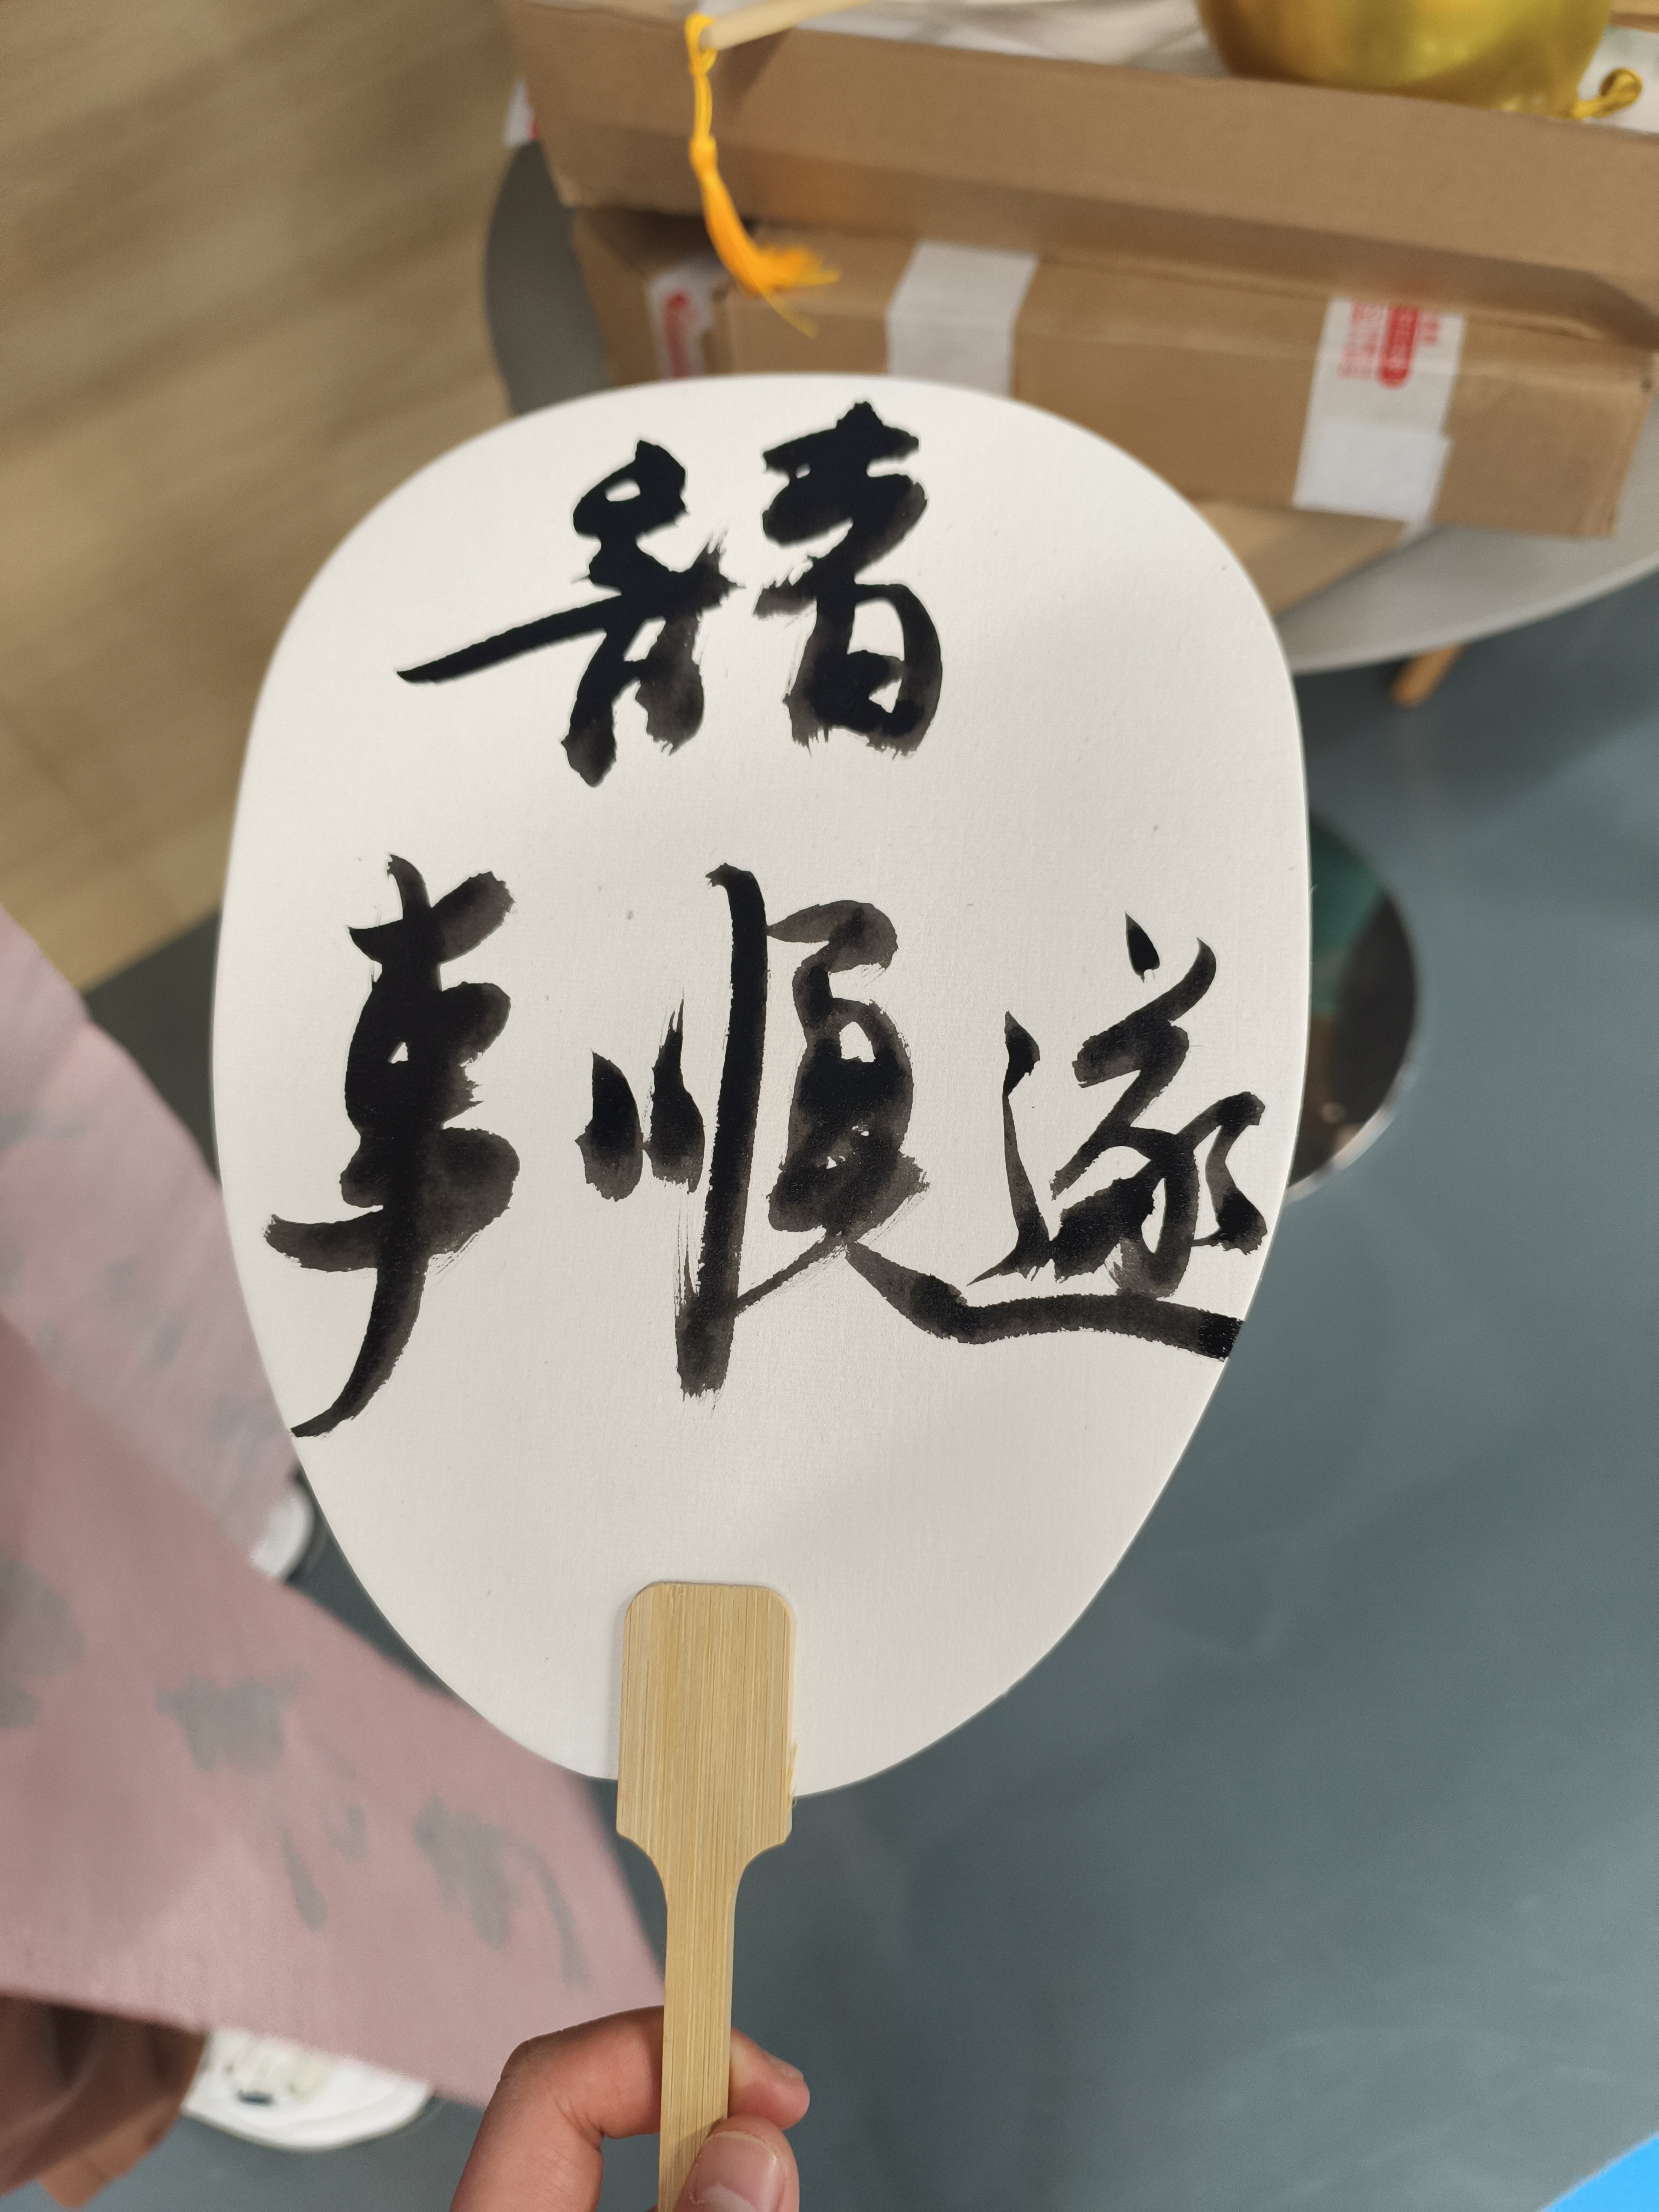 諸
事順遂